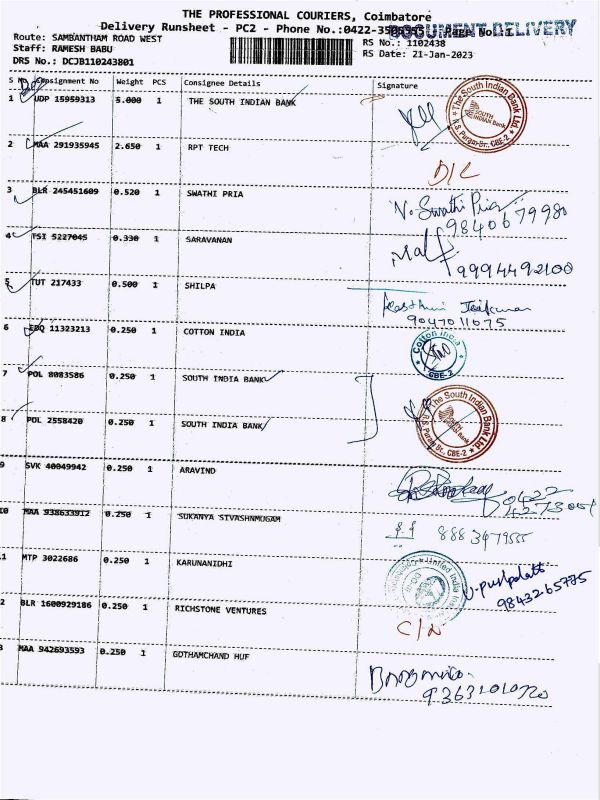 THE PROFESSIONAL COURIERS, Coimbatore
Delivery Runsheet - PC2 - Phone No.:0422- Page No: 1
DOCUMENT DELIVERY
Route: SAMBANTHAM ROAD WEST
RS No.: 1102438
Staff: RAMESH BABU
RS Date: 21-Jan-2023
DRS No.: DCJB110243801
S No Consignment No Weight PCS Consignee Details Signature
1 UDP 15959313 5.000 1 THE SOUTH INDIAN BANK
The South Indian Bank Ltd.
SOUTH INDIAN Bank
R.S. Puram Br., CBE-2
2 MAA 291935945 2.650 1 RPT TECH
D/L
3 BLR 245451609 0.520 1 SWATHI PRIA
N. Swathi Pria
9840679980
4 TSI 5227045 0.330 1 SARAVANAN
9994492100
5 TUT 217433 0.500 1 SHILPA
9047011075
6 EDQ 11323213 0.250 1 COTTON INDIA
Cotton India
CBE-2
7 POL 8083586 0.250 1 SOUTH INDIA BANK
8 POL 2558420 0.250 1 SOUTH INDIA BANK
The South Indian Bank Ltd.
R.S. Puram Br., CBE-2
9 SVK 40049942 0.250 1 ARAVIND
0422
10 MAA 938633912 0.250 1 SUKANYA SIVASHNMUGAM
8883479555
1 MTP 3022686 0.250 1 KARUNANIDHI
United India
9843265785
2 BLR 1600929186 0.250 1 RICHSTONE VENTURES
C/N
3 MAA 942693593 0.250 1 GOTHAMCHAND HUF